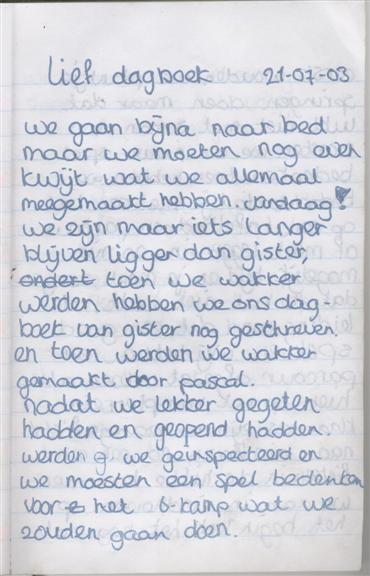 lief dagboek 21-07-03
we gaan bijna naar bed
maar we moeten nog even
kwijt wat we allemaal
meegemaakt hebben. vandaag!
we zijn maar iets langer
blijven liggen dan gister,
ondert toen we wakker
werden hebben we ons dag-
boek van gister nog geschreven.
en toen werden we wakker
gemaakt door pascal.
nadat we lekker gegeten
hadden en geopend hadden.
werden we geinspecteerd en
we moesten een spel bedenken
voor het 6-kamp wat we
zouden gaan doen.